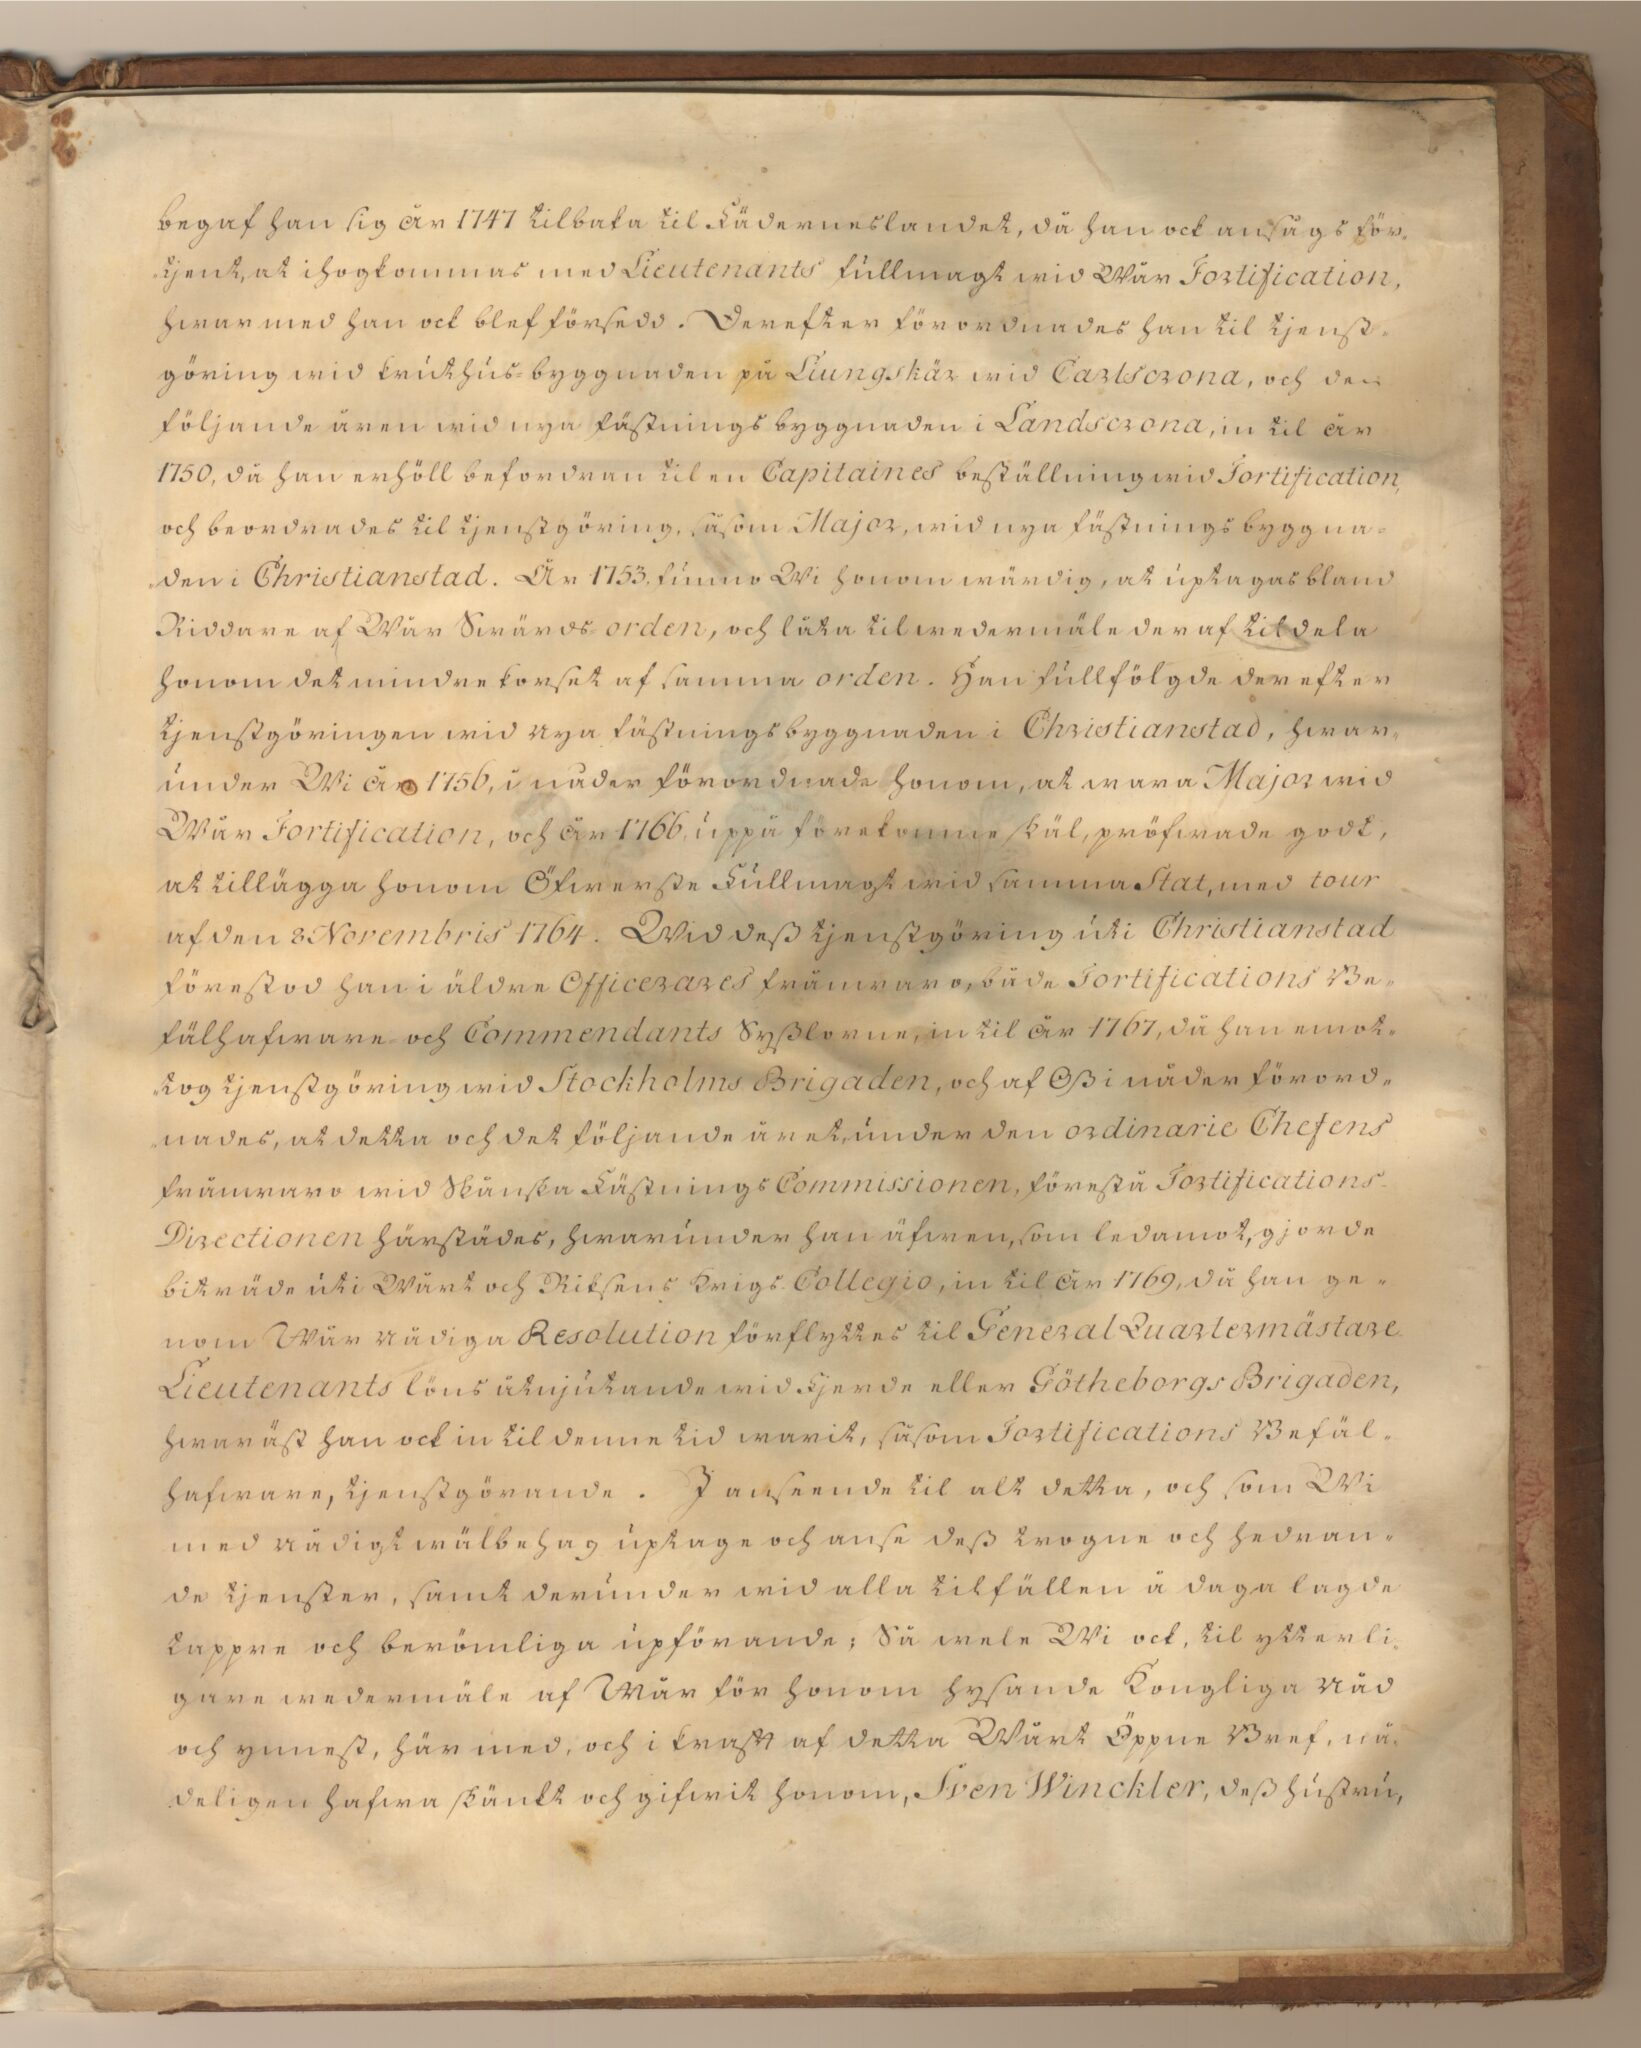 begaf han sig år 1747 tilbaka til Fäderneslandet, då han ock ansågs för-
tjent, at ihogkommas med Lieutenants fullmagt wid Wår Fortification,
hwarmed han ock blef försedd. Derefter förordnades han til tjenst-
göring wid kruthus-byggnaden på Liungskär wid Carlscrona, och de
följande åren wid nya fästningsbyggnaden i Landscrona, in til år
1750, då han erhöll befordran til en Capitaines beställning wid Fortification,
och beordrades til tjenstgöring, såsom Major, wid nya fästningsbyggna-
den i Christianstad. År 1753, funno Wi honom wärdig, at uptagas bland
Riddare af Wår Swärds-orden, och låta til wedermäle deraf tildela
honom det mindre korset af samma orden. Han fullfölgde derefter
tjenstgöringen wid nya fästningsbyggnaden i Christianstad, hwar-
under Wi år 1756, i nåder förordnade honom, at wara Major wid
Wår Fortification, och år 1766, uppå förekomne skäl, pröfwade godt,
at tillägga honom Öfwerste Fullmagt wid samma Stat, med tour
af den 8 Novembris 1764. Wid deß tjenstgöring uti Christianstad
förestod han i äldre Officerares frånwaro, både Fortifications Be-
fälhafware- och Commendants Sysslorne, in til år 1767, då han emot-
tog tjenstgöring wid Stockholms Brigaden, och af Oß i nåder förord-
nades, at detta och det följande året, under den ordinarie Chefens
frånwaro wid Skånska Fästnings Commissionen, förestå Fortifications-
Directionen härstädes, hwarunder han äfwen, som ledamot, gjorde
biträde uti Wårt och Riksens Krigs-Collegio, in til år 1769, då han ge-
nom Wår nådiga Resolution förflyttes til General Quartermästare
Lieutenants löns åtnjutande wid Fjerde eller Götheborgs Brigaden,
hwaräst han ock in til denne tid warit, såsom Fortifications Befäl-
hafware, tjenstgörande. I anseende til alt detta, och som Wi
med nådigt wälbehag uptage och anse deß trogne och hedran-
de tjenster, samt derunder wid alla tilfällen å daga lagde
tappre och berömliga upförande; Så wele Wi ock, til ytterli-
gare wedermäle af Wår för honom hysande Kongliga Nåd
och ynnest, härmed, och i kraft af detta Wårt Öppne Bref, nå-
deligen hafwa skänkt och gifwit honom, Sven Winckler, deß hustru,